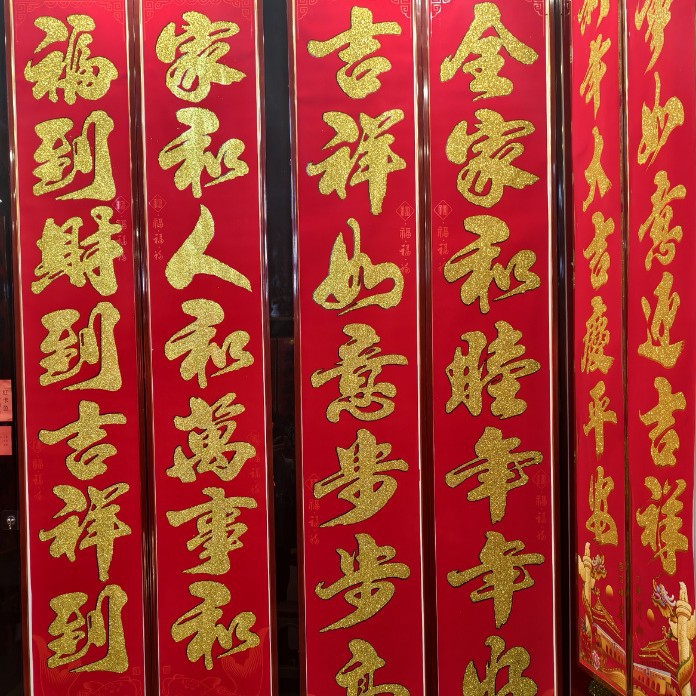 如意迎吉祥
年大吉慶平安
全家和睦年年好
吉祥如意步步高
家和人和萬事和
福到財到吉祥到